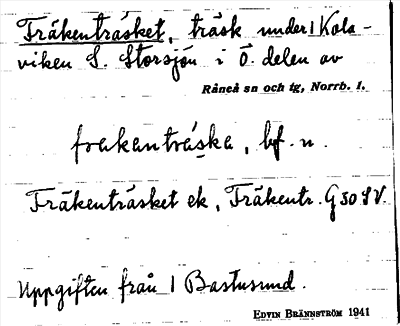 Fräkenträsket, träsk under 1 Kola-
viken S. Storsjön i Ö. delen av
Råneå sn och tg, Norrb. l.
frakanträska, bf. n.
Fräkenträsket ek, Fräkentr. G 50 SV.
Uppgiften från 1 Bastusund.
Edvin Brännström 1941